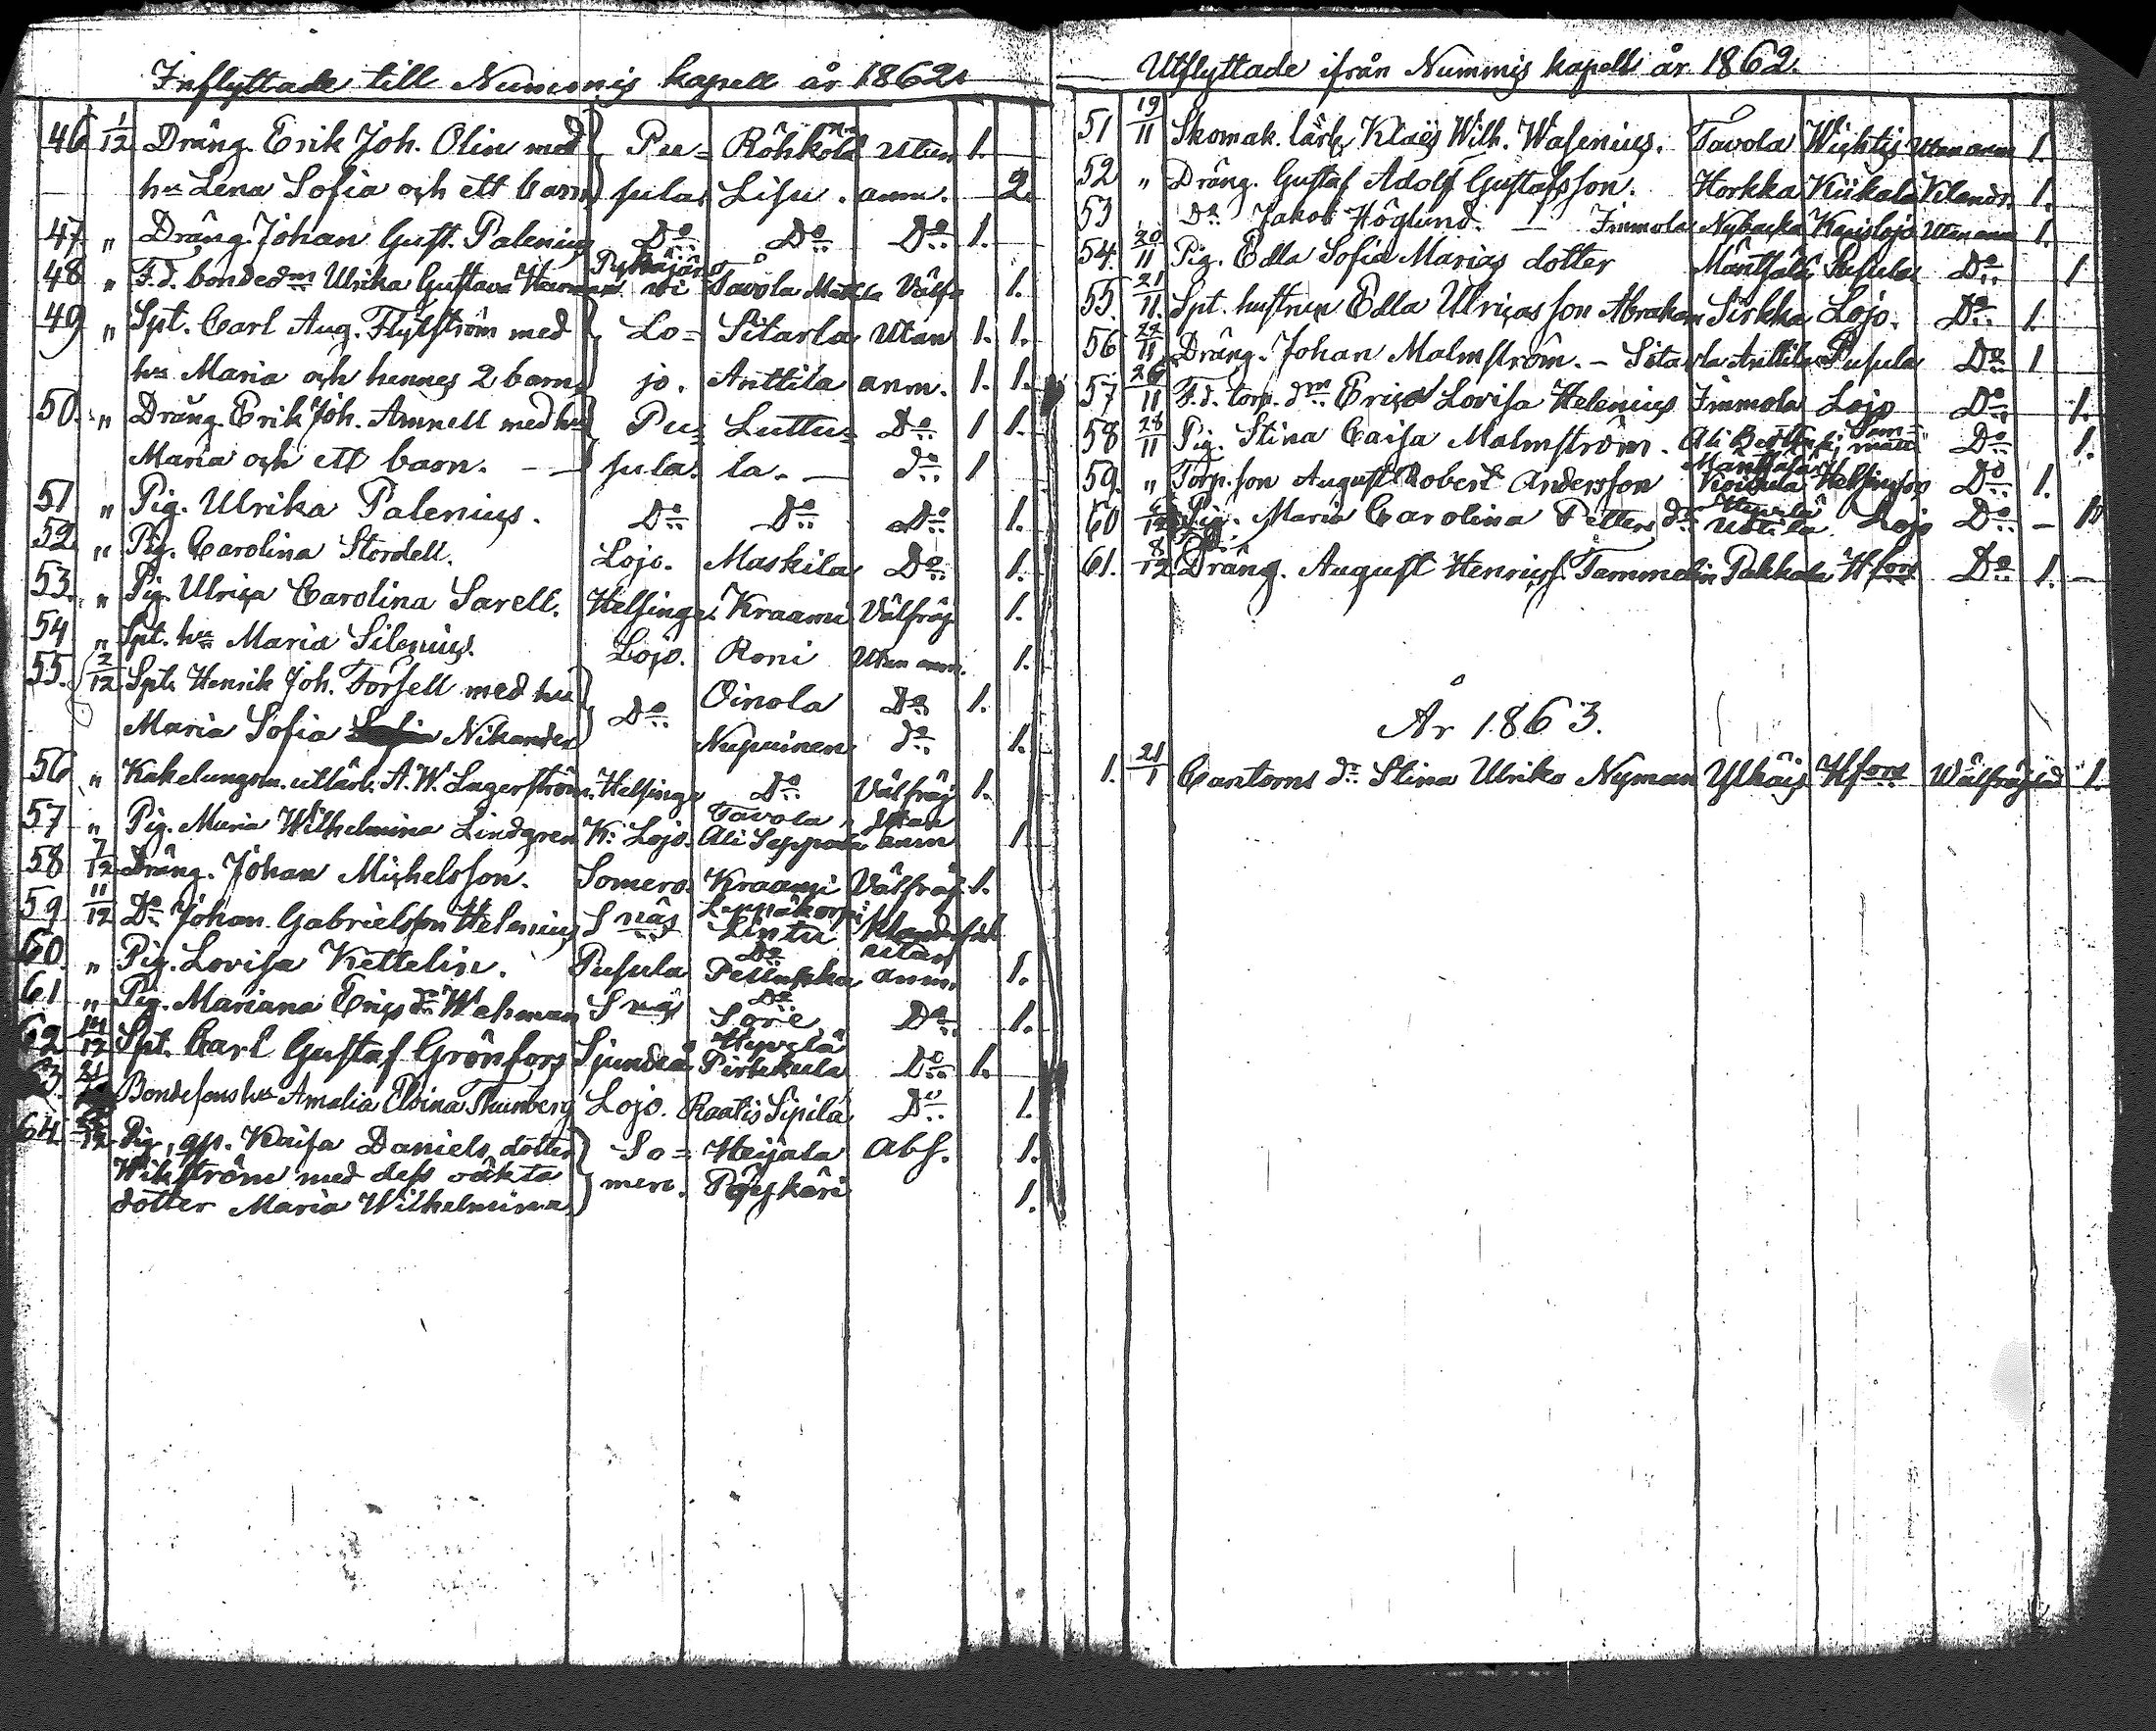 Inflyttade till Nummis kapell år 1862.
46 1/12 Dräng. Erik Joh. Olin med Pu= Röhkölä utan 1.
hu Lena Sofia och ett barn sula. Lisu. anm. 2.
47 " Dräng. Johan Gust. Palenius Do Do Do 1.
48 " F.d. bondedm Ulrika Gustava Pyhäjär wi Tavola Välfr 1.
49 " Spt. Carl Aug. Flytström med Lo= Sitarla Utan 1. 1.
hu Maria och hennes 2 barn jo. Anttila anm. 1. 1.
50. " Dräng. Erik Joh. Amnell med hu Pu= Luttu= Do 1 1.
Maria och ett barn. — sula. la. — do 1
51 " Pig. Ulrika Palenius. Do Do Do 1.
52 " Pig. Carolina Stordell. Lojo. Maskila Do 1.
53. " Pig. Ulrica Carolina Sarell. Helsinge. Kraami Välfräj 1.
54 " Spt. hu Maria Silenius. Lojo. Roni Utan anm. 1.
55. 2/12 Spt. Henrik Joh. Forsell med hu Do Oinola Do 1.
Maria Sofia Nikander Nupuinen do 1.
56 " Kakelungsm. utlärl. A. W. Lagerström. Helsinge Do Välfräj 1.
57 " Pig. Maria Wilhelmina Lindgren K: Lojo. Tavola Ali Seppälä utan anm 1.
58 7/12 Dräng. Johan Michelsson. Somero. Kraami Välfräj. 1.
59 11/12 Do Johan Gabrielsson Helenius S näs Leppäkorpi Lintu
60. " Pig. Lovisa Kettelin. Pusula Do utan anm. 1.
61 " Pig. Mariana Erics dr Wekman S näs Do Sore Do 1.
62 Spt. Carl Gustaf Grönfors Sjundeå Hyvelä Pirkkula Do 1.
63. Bondesons hu Amalia Elvina Thunberg Lojo. Raatis Sipilä Do 1.
64 /12 Pig. Kaisa Daniels dotter So= Heijala Abs. 1.
Wikström med dess oäkta mero.
dotter Maria Wilhelmina 1.
Utflyttade ifrån Nummis kapell år 1862.
51 19/11 Skomak. lärl. Klaës Wilh. Wasenius. Tavola Wichtis Utan anm 1.
52 " Dräng. Gustaf Adolf Gustafsson. Horkka Kiikala Klandr. 1.
53 Do Jakob Höglund. — Immola Nybacka Karislojo Utan anm 1.
54. 20/11 Pig. Edla Sofia Marias dotter Mäntsälä Pusula Do 1
55. 21/11. Spt. hustrun Edla Ulricas son Abraham Sirkka Lojo. Do 1.
56 22/11 Dräng. Johan Malmström. — Sitarla Anttila Pusula Do 1
57 26/11 F.d. torp. dm Erica Lovisa Helenius Immola Lojo Do 1.
58 28/11 Pig. Stina Caisa Malmström. Ali Berttula Sam= matti Do 1.
59. " Torp. son August Robert Andersson Mäntsälä Helsingfors Do 1.
60 6/12 Pig. Maria Carolina Petters dr Hyvelä Uotila Lojo Do — 1.
61. 8/12 Dräng. August Henricss. Tammelin Pakkala Hfors Do 1. —
År 1863.
1. 21/1 Cantorns dr Stina Ulrika Nyman Ylhäis Hfors Wälfräjdad 1.